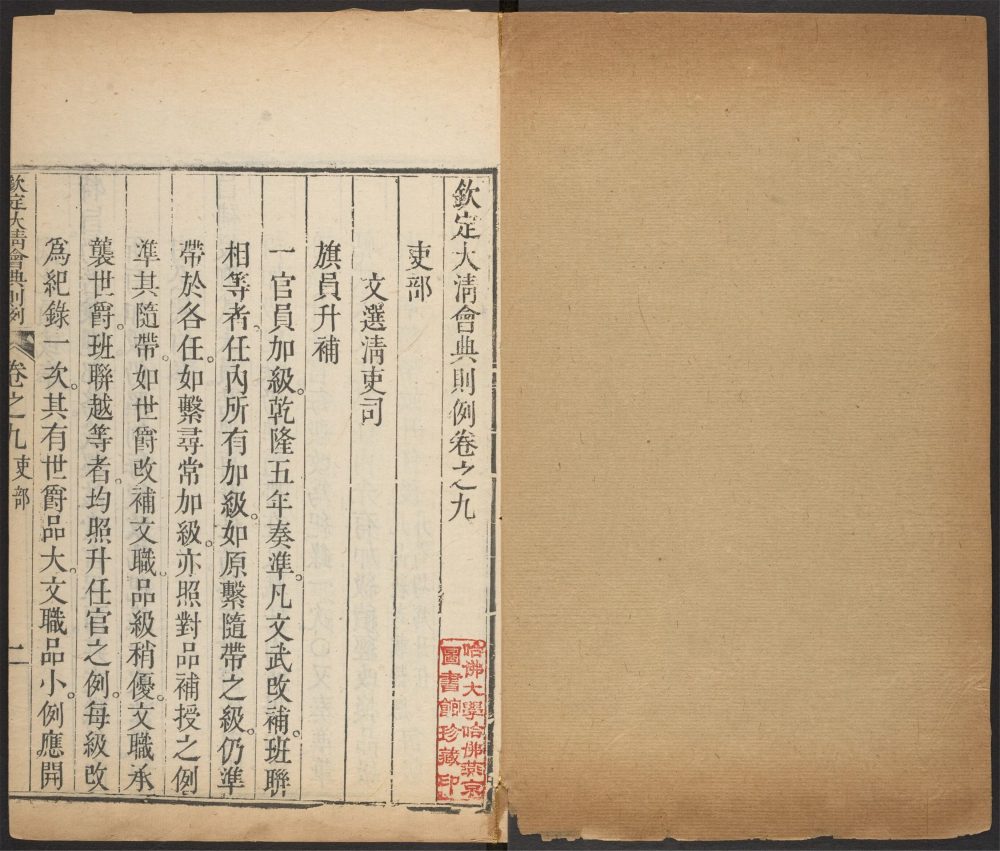 欽定大清會典則例卷之九
吏部
文選清吏司
旗員升補
一官員加級。乾隆五年奏準。凡文武改補。班聯
相等者。任內所有加級。如原繫隨帶之級。仍準
帶於各任。如繫尋常加級。亦照對品補授之例
準其隨帶。如世爵改補文職。品級稍優。文職承
襲世爵。班聯越等者。均照升任官之例。每級改
為紀錄一次。其有世爵品大。文職品小。例應開
欽定大清會典則例
卷之九吏部
一
哈佛大學哈佛燕京
圖書館珍藏印